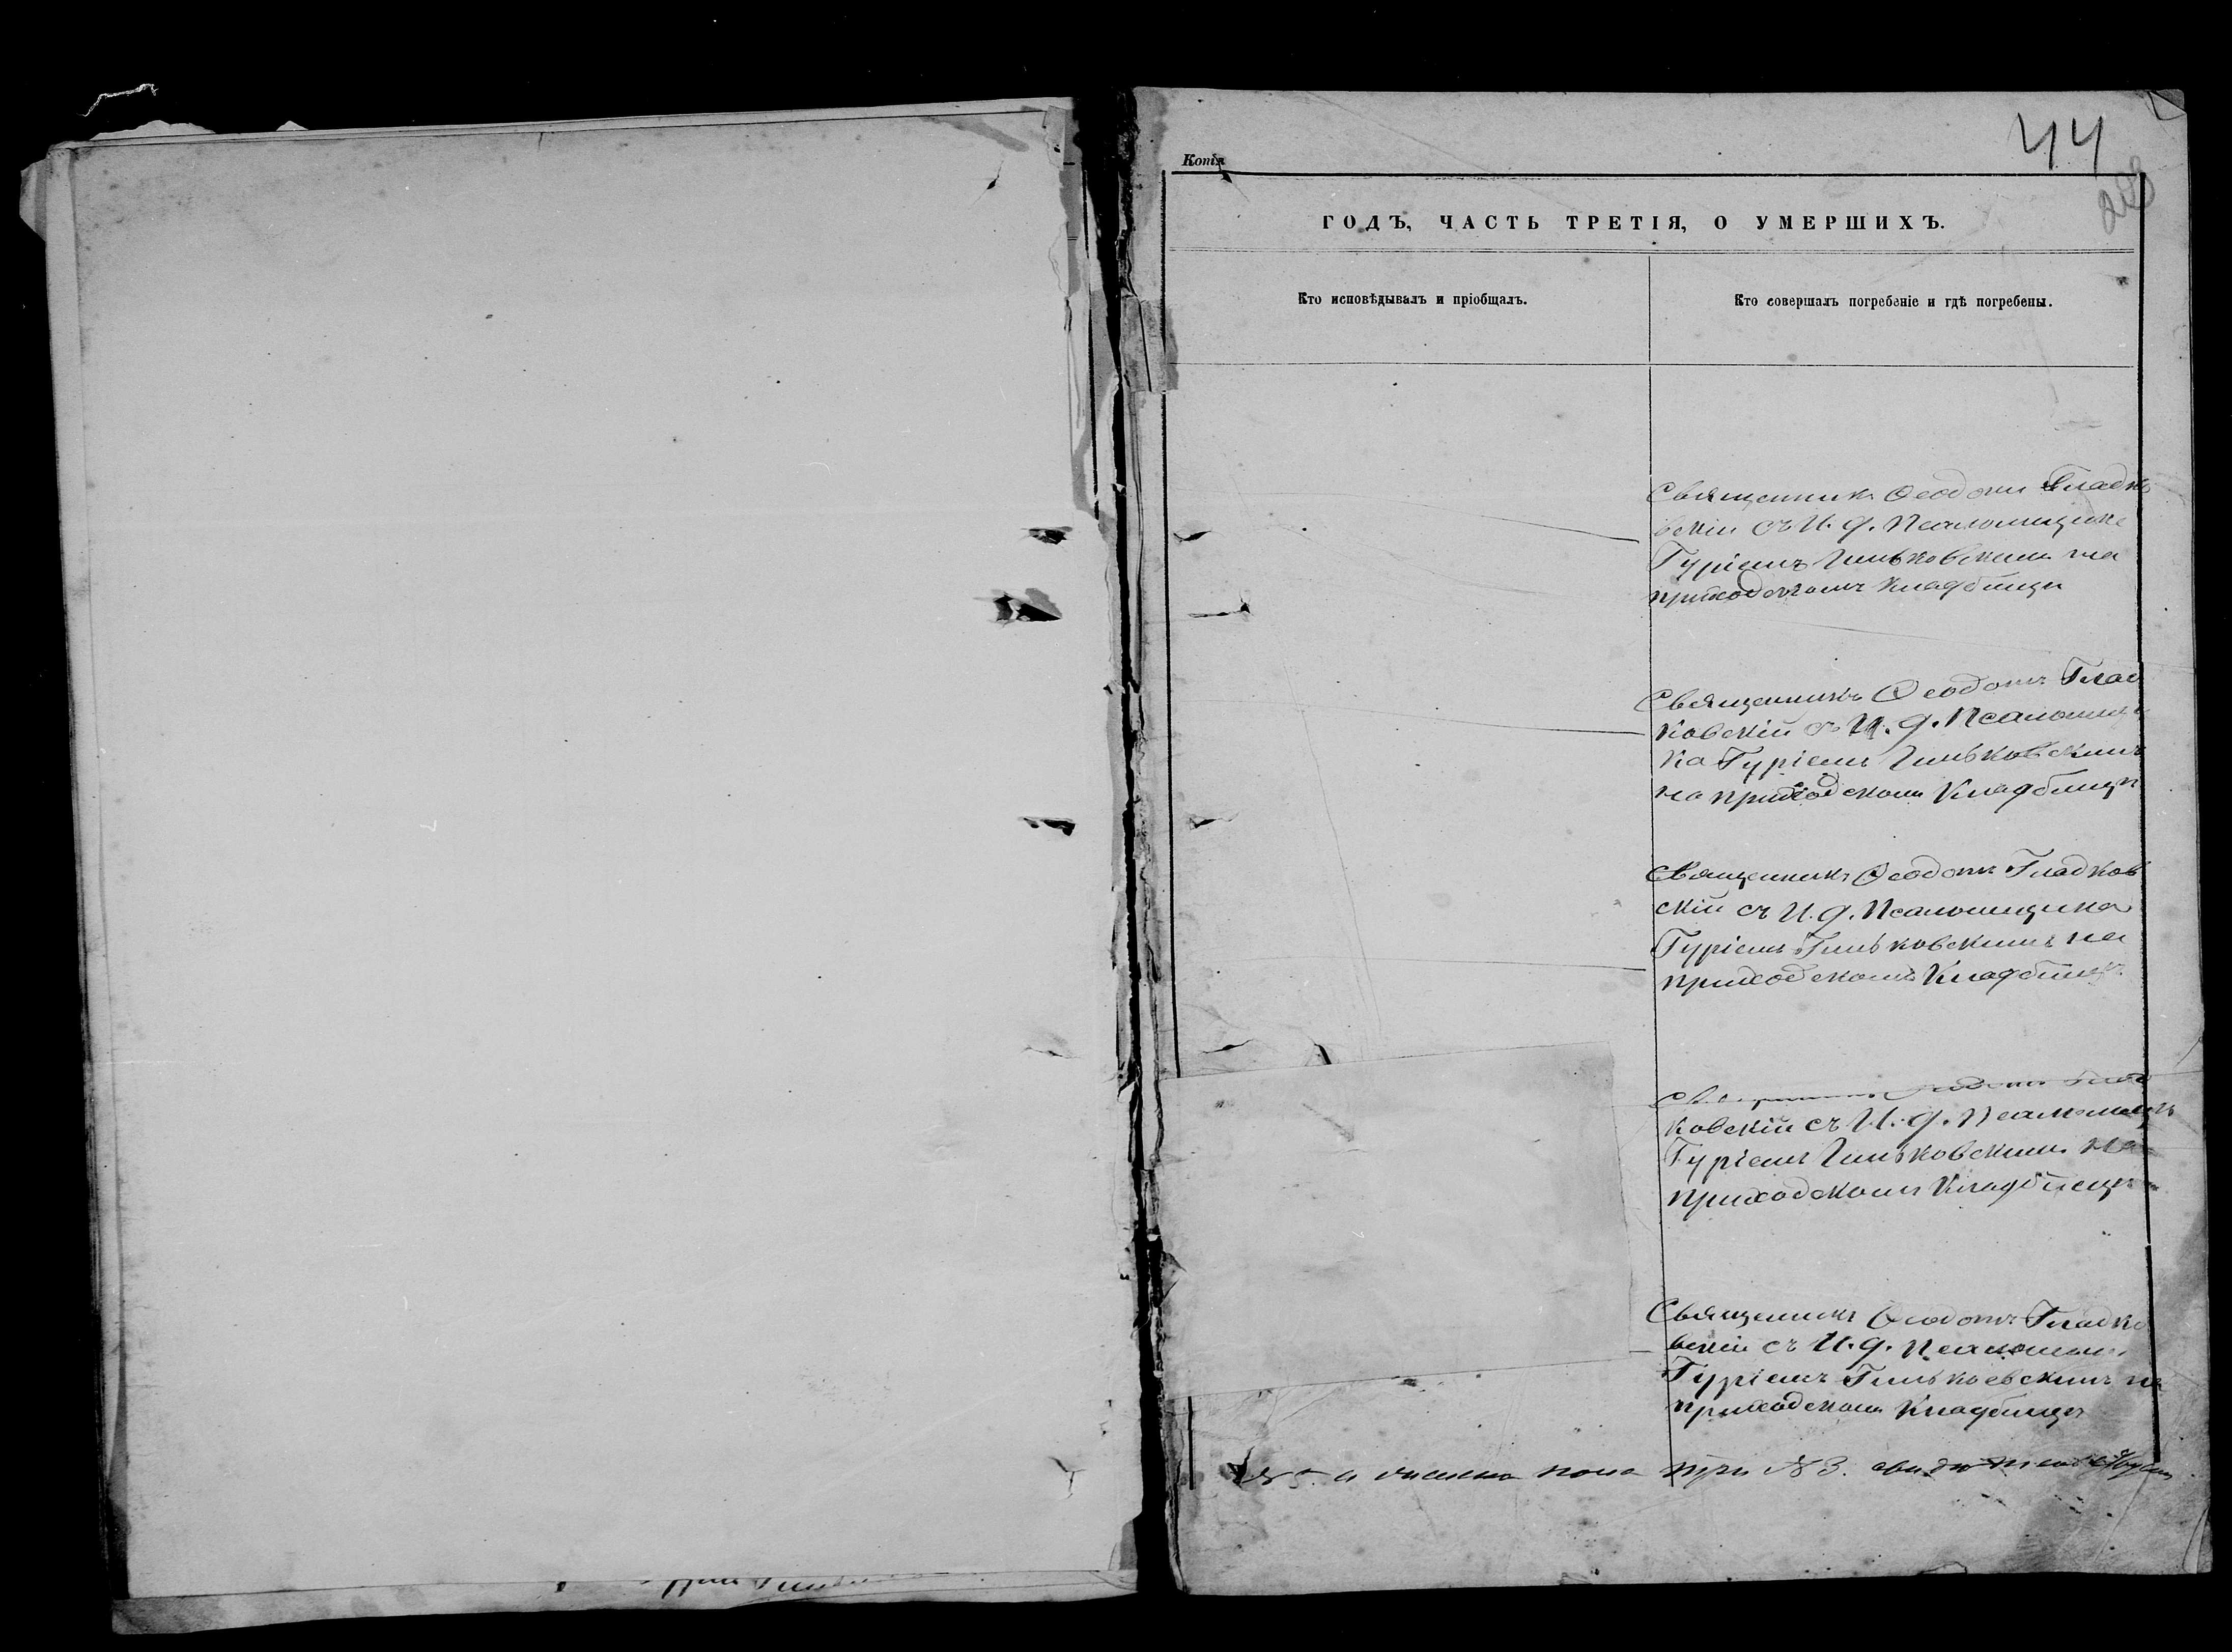 44
Копія
ГОДЪ, ЧАСТЬ ТРЕТІЯ, О УМЕРШИХЪ.
Кто исповѣдывалъ и пріобщалъ.
Кто совершалъ погребеніе и гдѣ погребены.
Священникъ Ѳеодотъ Гладко
вскій съ И. д. Псаломщика
Гуріемъ Гиньковскимъ на
приходскомъ кладбищѣ
Священникъ Ѳеодотъ Глад
ковскій съ И. д. Псаломщи
ка Гуріемъ Гиньковскимъ
на приходскомъ Кладбищѣ
Священникъ Ѳеодотъ Гладков
скій съ И. д. Псаломщика
Гуріемъ Гиньковскимъ на
приходскомъ Кладбищѣ
Священникъ Ѳеодотъ Глад
ковскій съ И. д. Псаломщик
Гуріемъ Гиньковскимъ на
приходскомъ Кладбищѣ
Священникъ Ѳеодотъ Гладко
вскій съ И. д. Псаломщик
Гуріемъ Гиньковскимъ на
приходскомъ Кладбищѣ
пола при № 3.